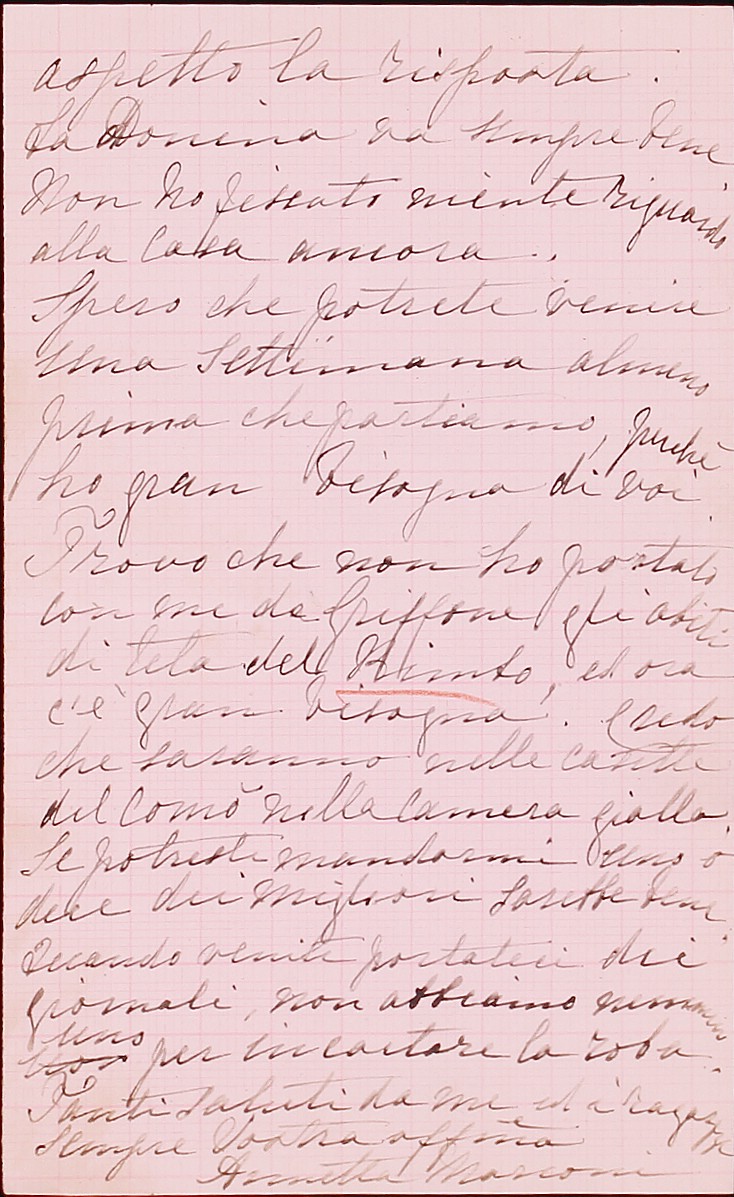 aspetto la risposta.
La Donina va sempre bene
Non ho fissato niente riguardo
alla Casa ancora.
Spero che potrete venire
una Settimana almeno
prima che partiamo, perchè
ho gran bisogno di voi.
Trovo che non ho portato
con me da Griffone gli abiti
di tela del Kimto, ed ora
c'è gran bisogno. Credo
che saranno nelle
del Comò nella Camera gialla.
Se potreste mandarmi uno o
due dei migliori sarebbe bene
Quando venite portateci dei
giornali, non abbiamo nemmen
uno
per incartare la roba.
Tanti saluti da me ed i ragazzi
Sempre Vostra affma
Annetta Marconi